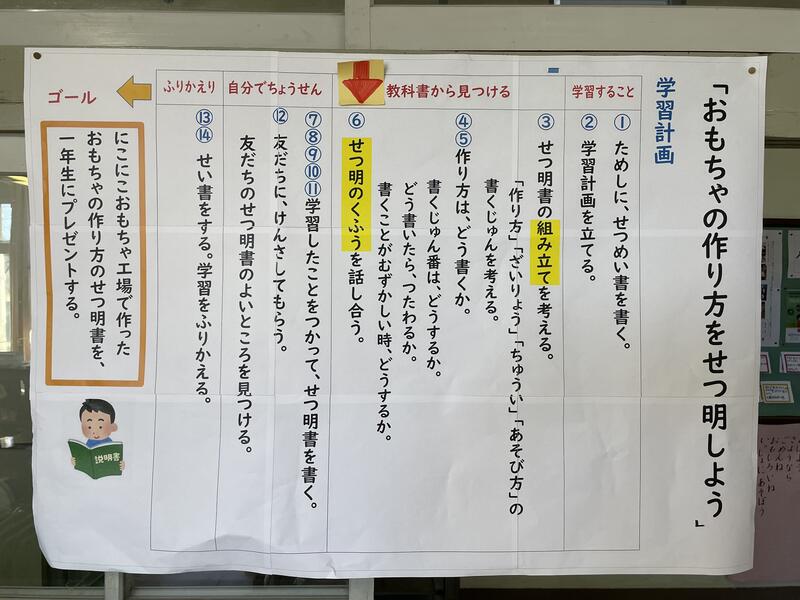 「おもちゃの作り方をせつ明しよう」
学習計画
学習すること
① ためしに、せつめい書を書く。
② 学習計画を立てる。
教科書から見つける
③ せつ明書の組み立てを考える。
「作り方」「ざいりょう」「ちゅうい」「あそび方」の
書くじゅんを考える。
④⑤ 作り方は、どう書くか。
書くじゅん番は、どうするか。
どう書いたら、つたわるか。
書くことがむずかしい時、どうするか。
⑥ せつ明のくふうを話し合う。
自分でちょうせん
⑦⑧⑨⑩⑪ 学習したことをつかって、せつ明書を書く。
⑫ 友だちに、けんさしてもらう。
友だちのせつ明書のよいところを見つける。
ふりかえり
⑬⑭ せい書をする。学習をふりかえる。
ゴール
にこにこおもちゃ工場で作った
おもちゃの作り方のせつ明書を、
一年生にプレゼントする。
説明書